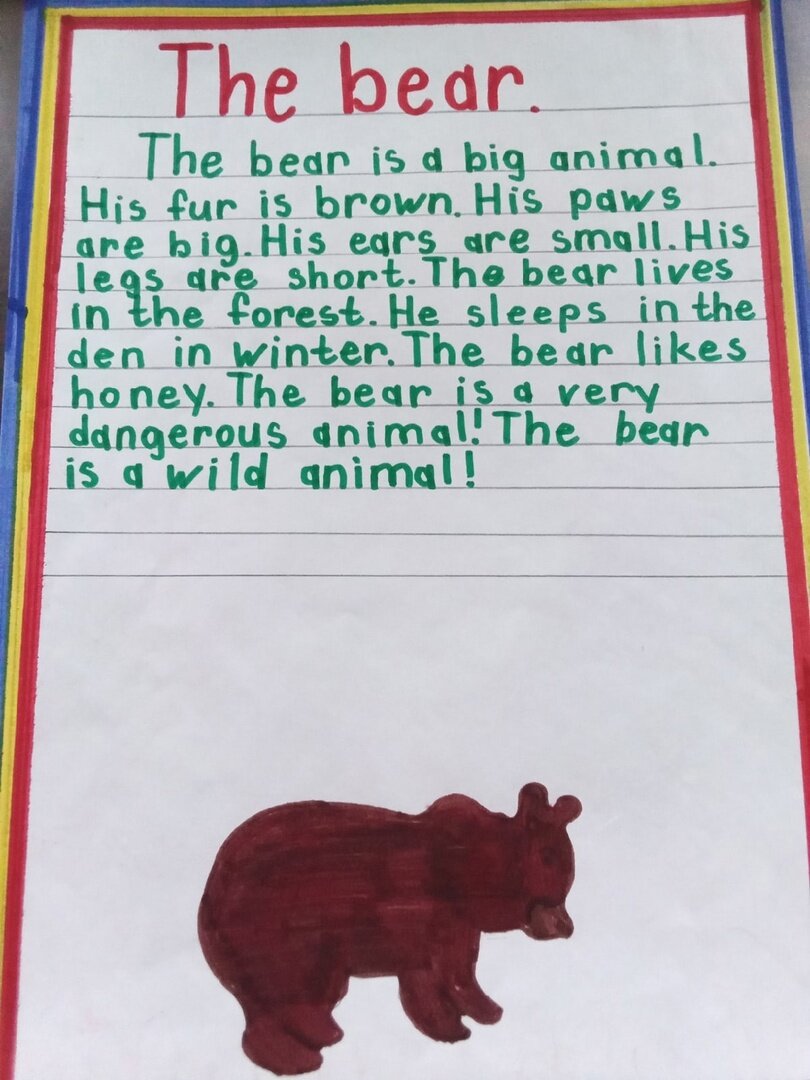 The bear.
The bear is a big animal.
His fur is brown. His paws
are big. His ears are small. His
legs are short. The bear lives
in the forest. He sleeps in the
den in winter. The bear likes
honey. The bear is a very
dangerous animal! The bear
is a wild animal!